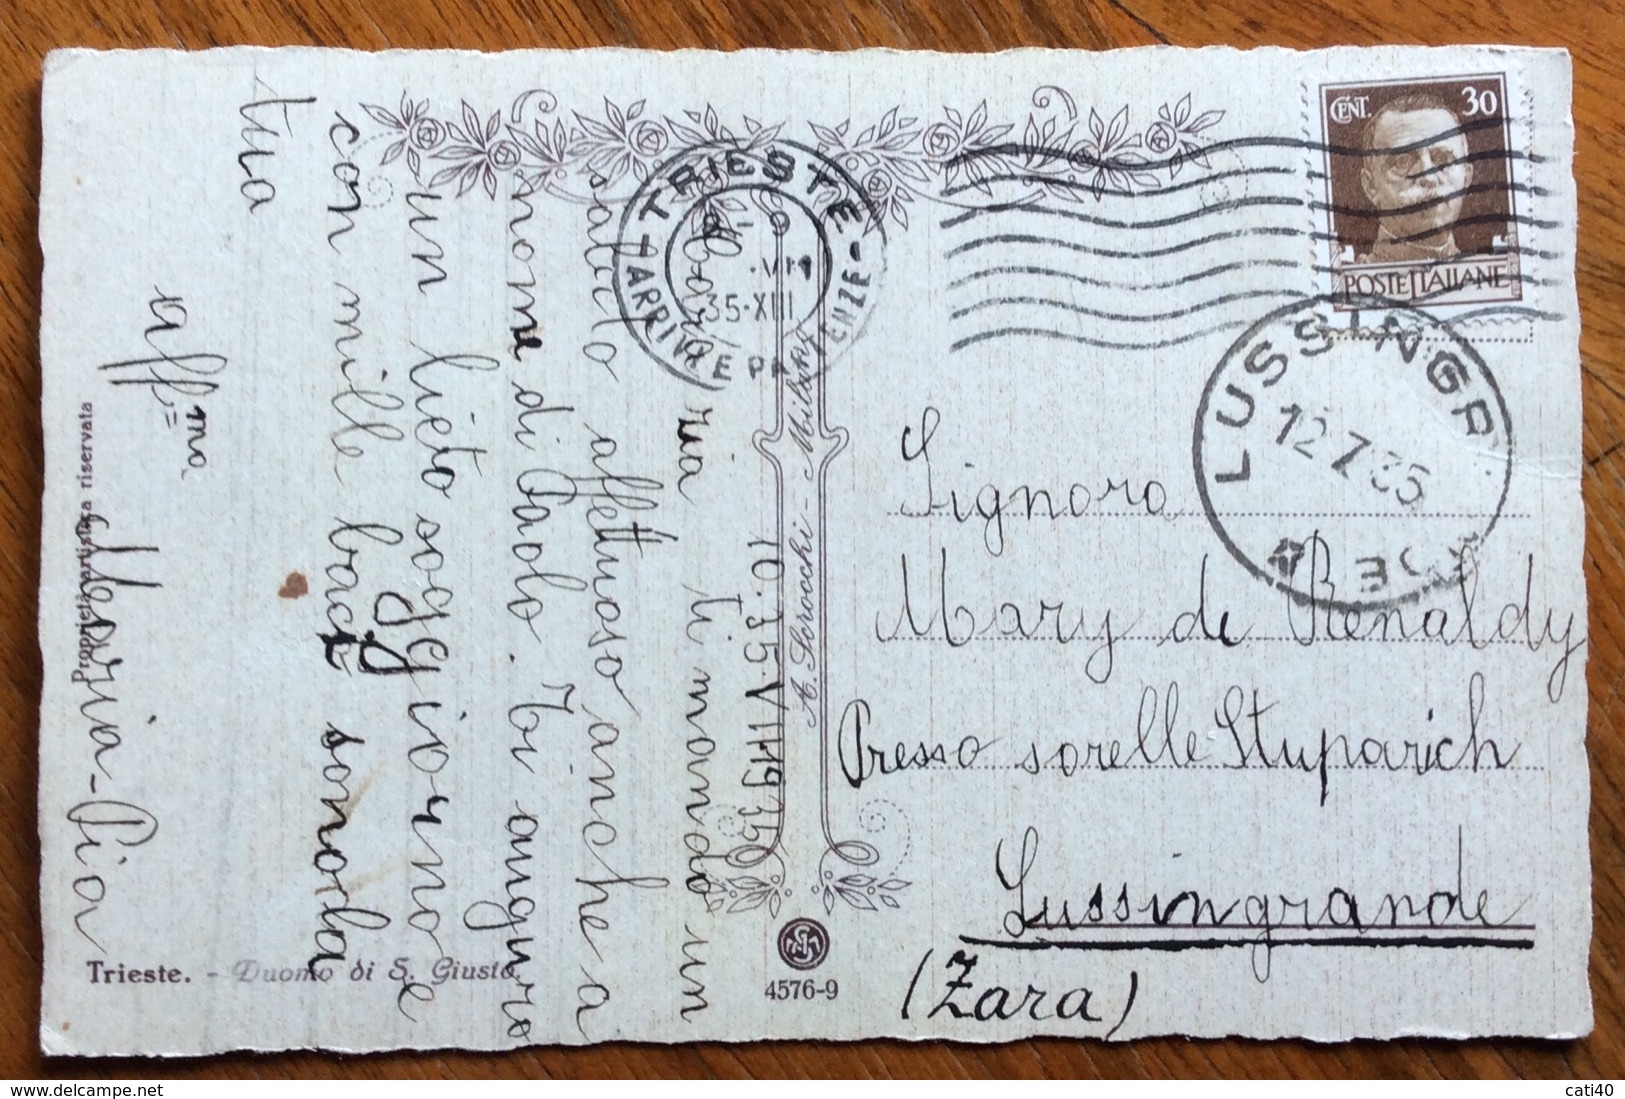 CENT. 30
POSTE ITALIANE
TRIESTE
ARRIVI E PARTENZE
35·XIII
LUSSINGR
12 7 35
10.35-VII-1935
Cara zia ti mando un
saluto affettuoso anche a
nome di Paolo. Ti auguro
un lieto soggiorno e
con mille baci sono la
tua
aff.ma
Maria-Pia
Signora
Mary de Renaldy
Presso sorelle Stuparich
Lussingrande
(Zara)
A. Scrocchi - Milano
4576-9
Proprietà artistica riservata
Trieste. - Duomo di S. Giusto.
cati40